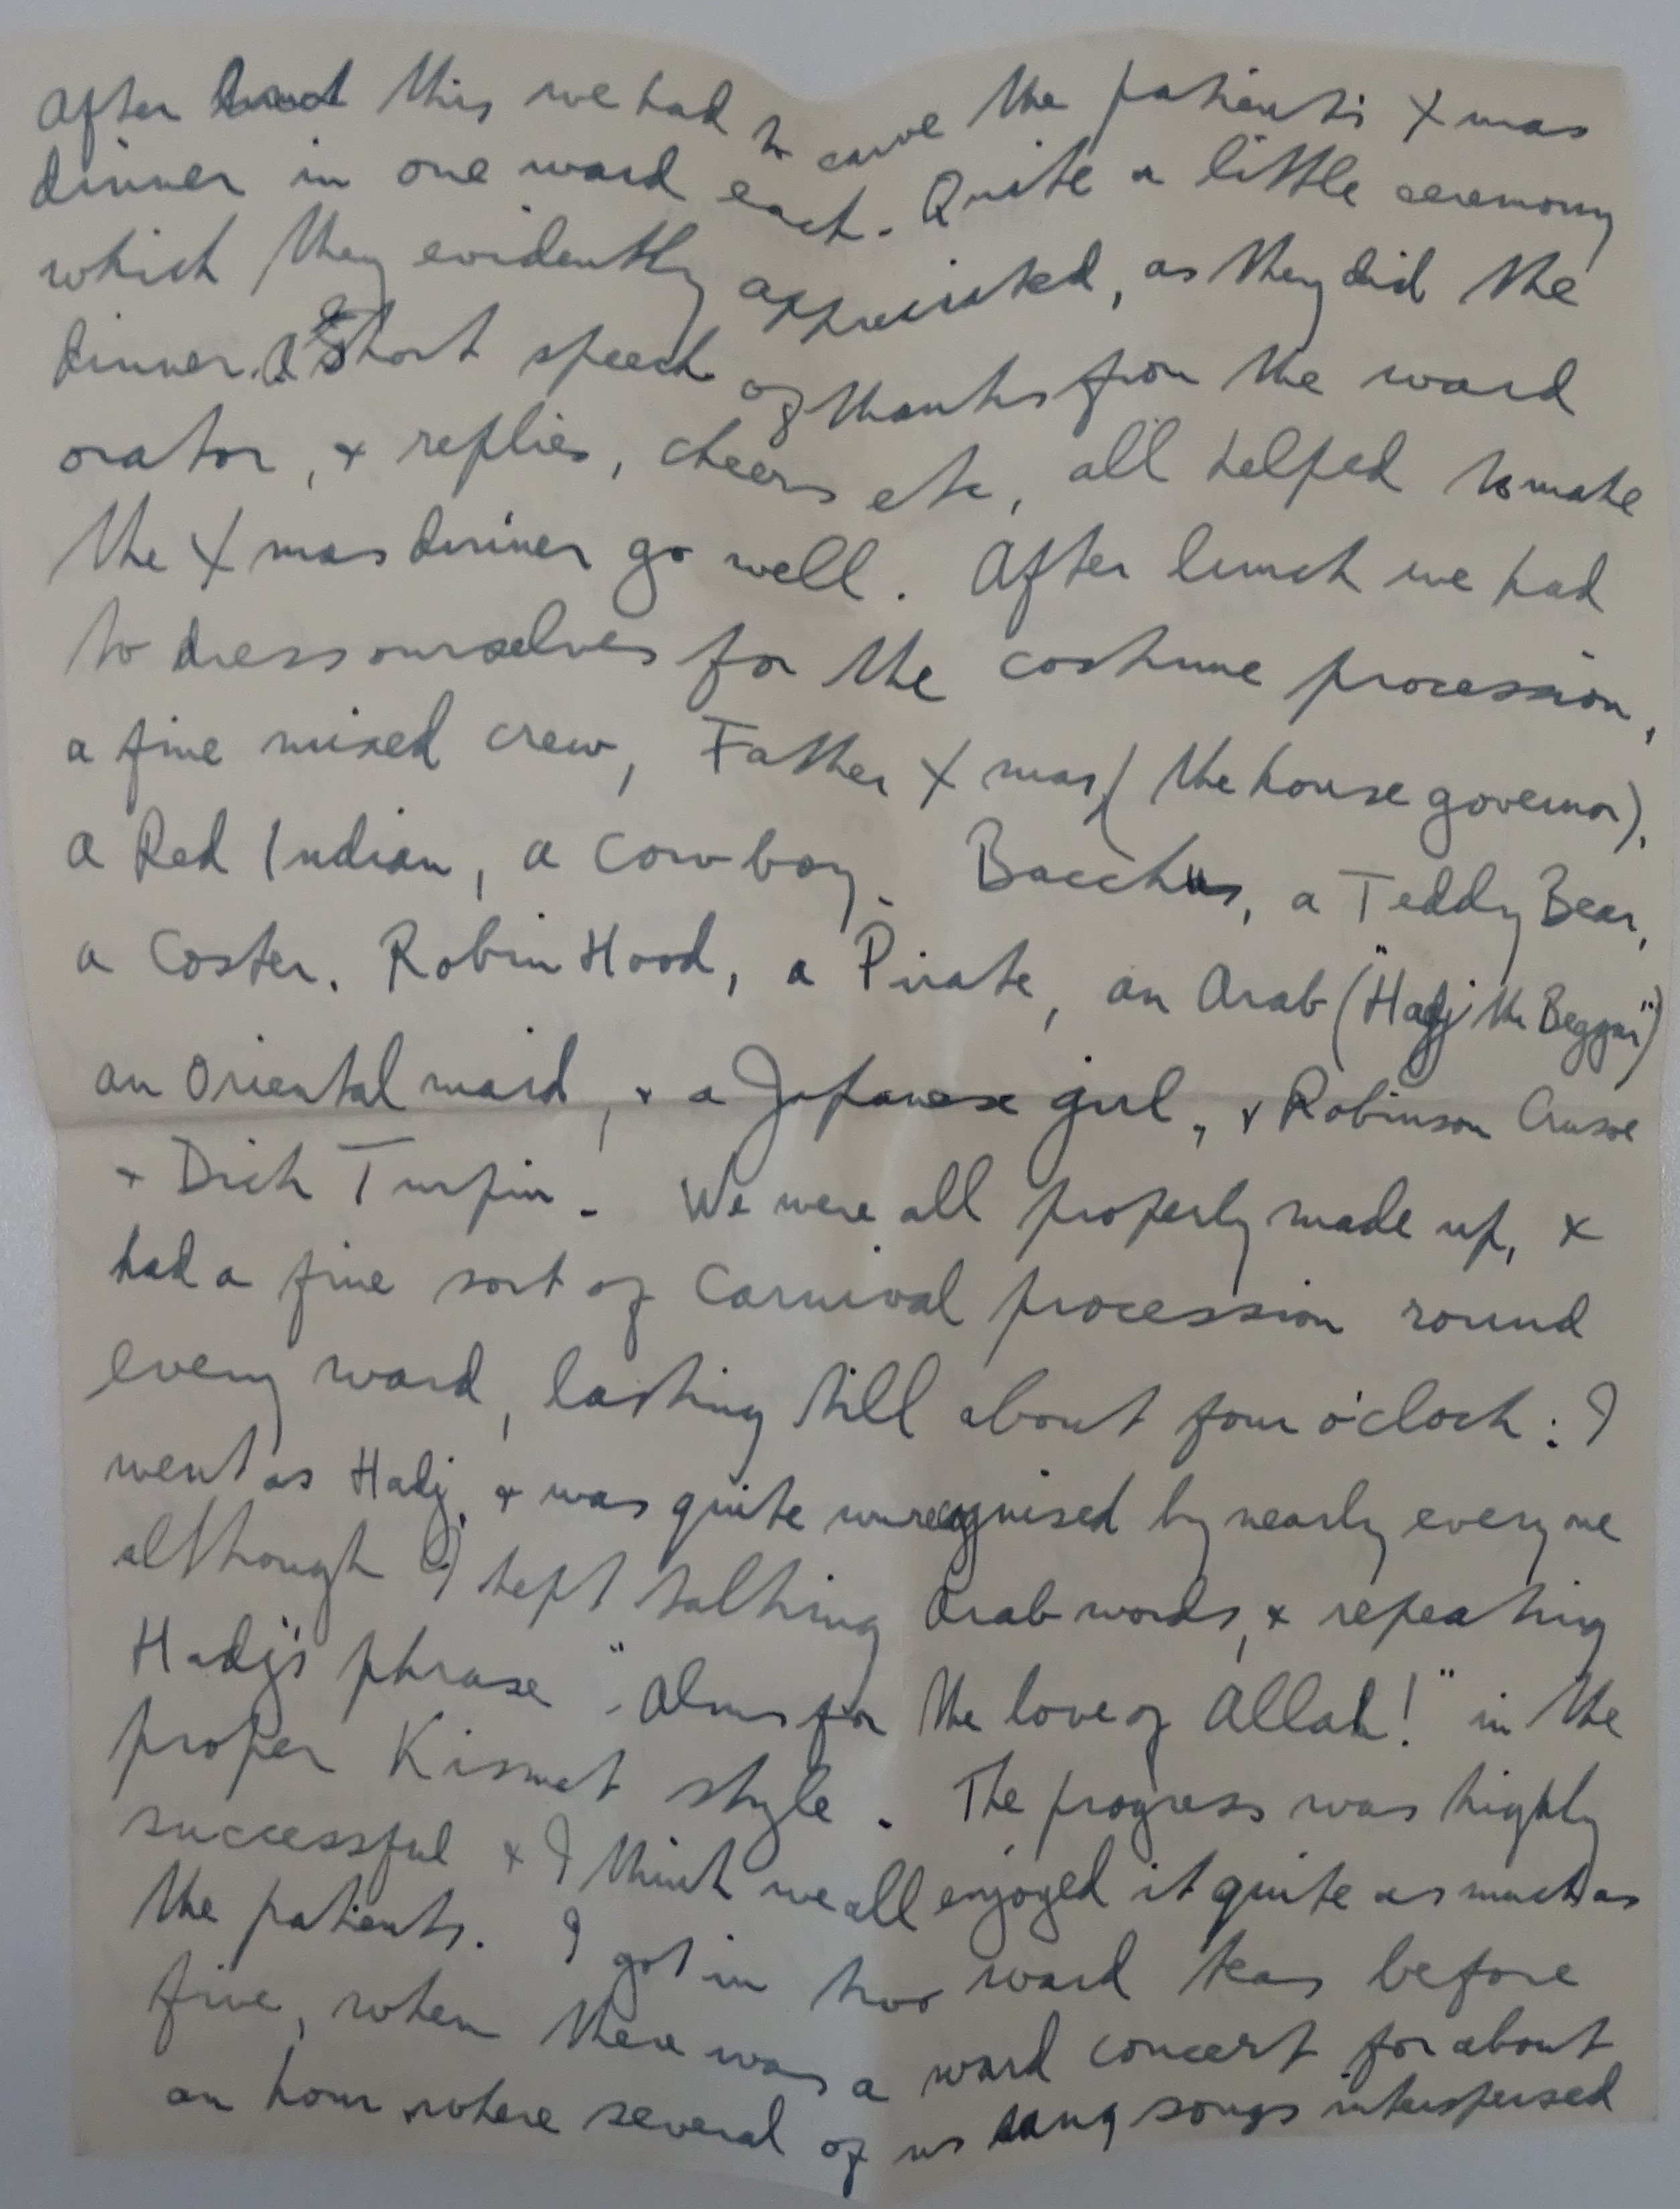 After this we had to carve the patients Xmas
dinner in one ward each. Quite a little ceremony
which they evidently appreciated, as they did the
dinner. A short speech of thanks from the ward
orator, & replies, cheers etc, all helped to make
the Xmas dinner go well. After lunch we had
to dress ourselves for the costume procession,
a fine mixed crew, Father Xmas (the house governor),
a Red Indian, a Cowboy. Bacchus, a Teddy Bear,
a Coster. Robin Hood, a Pirate, an Arab ("Hadj the Beggar")
an Oriental maid, & a Japanese girl, & Robinson Crusoe
& Dick Turpin. We were all properly made up, &
had a fine sort of Carnival procession round
every ward, lasting till about four o'clock: I
went as Hadj, & was quite unrecognised by nearly everyone
although I kept talking Arab words, & repeating
Hadj's phrase "Alms for the love of Allah!" in the
proper Kismet style. The progress was highly
successful & I think we all enjoyed it quite as much as
the patients. I got in two ward teas before
five, when there was a ward concert for about
an hour where several of us sang songs interspersed